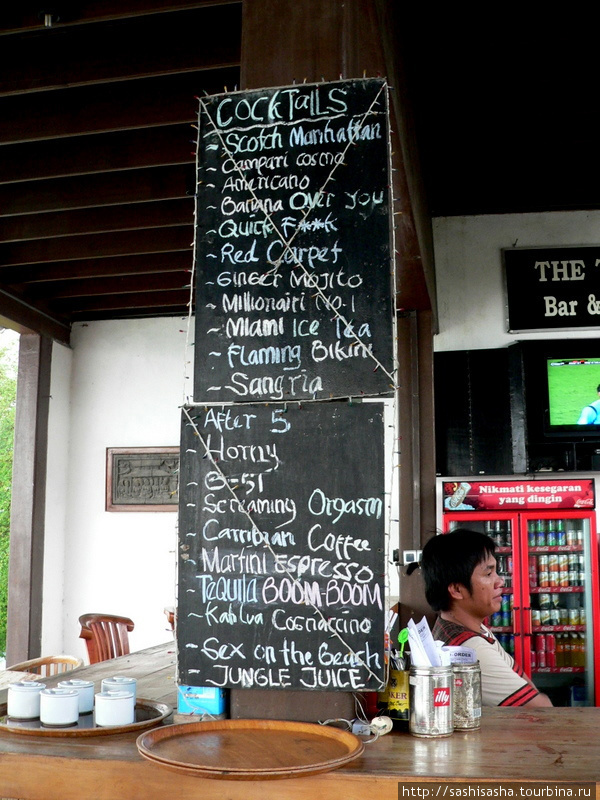 COCKTAILS
- Scotch Manhattan
- Campari cosmo
- Americano
- Banana Over You
- Quick F***k
- Red Carpet
- Ginger Mojito
- Millionairi No.1
- Miami Ice Tea
- Flaming Bikini
- Sangria
- After 5
- Horny
- B-51
- Screaming Orgasm
- Carribian Coffee
- Martini Espresso
- Taquila BOOM-BOOM
- Kahlua Cognaccino
- Sex on the Beach
- JUNGLE JUICE
THE
Bar &
Nikmati kesegaran
yang dingin
Coca-Cola
illy
http://sashisasha.tourbina.ru